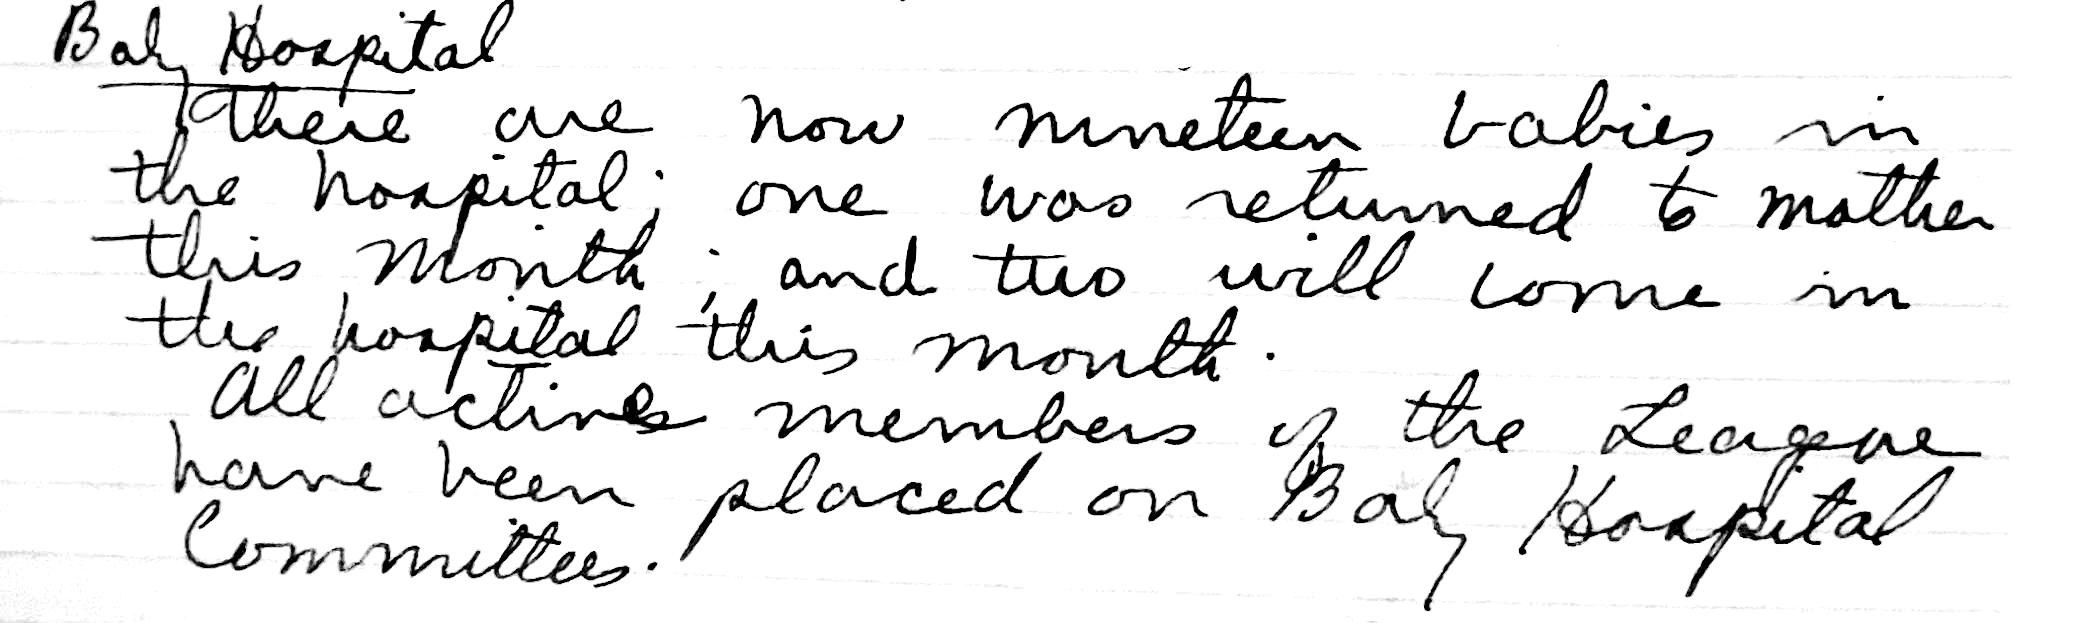 Baby Hospital
There are now nineteen babies in
the hospital; one was returned to mother
this month; and two will come in
the hospital this month.
All active members of the League
have been placed on Baby Hospital
Committees.